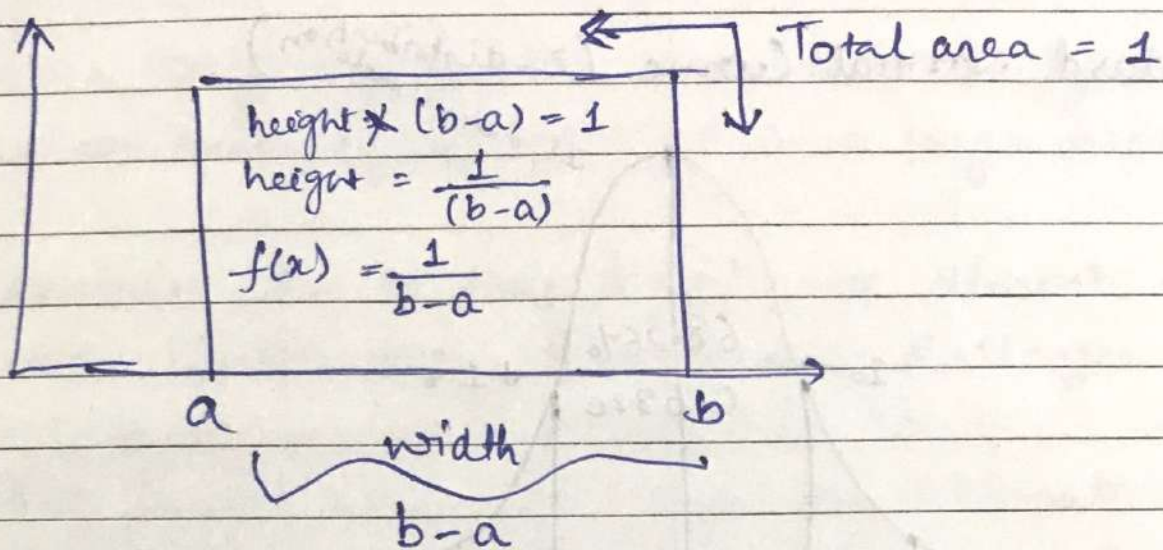 Total area = 1
height × (b-a) = 1
height = 1/(b-a)
f(x) = 1/b-a
a
b
width
b-a